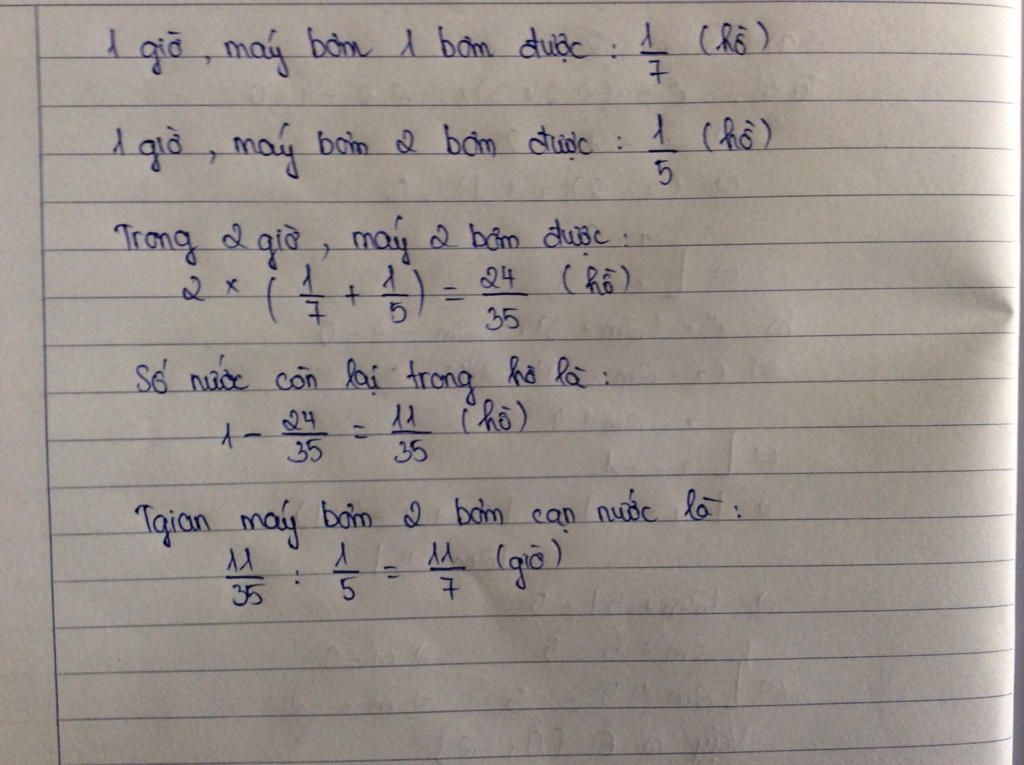 1 giờ, máy bơm 1 bơm được: 1/7 (hồ)
1 giờ, máy bơm 2 bơm được: 1/5 (hồ)
Trong 2 giờ, máy 2 bơm được:
2 × (1/7 + 1/5) = 24/35 (hồ)
Số nước còn lại trong hồ là:
1 - 24/35 = 11/35 (hồ)
Tgian máy bơm 2 bơm cạn nước là:
11/35 : 1/5 = 11/7 (giờ)